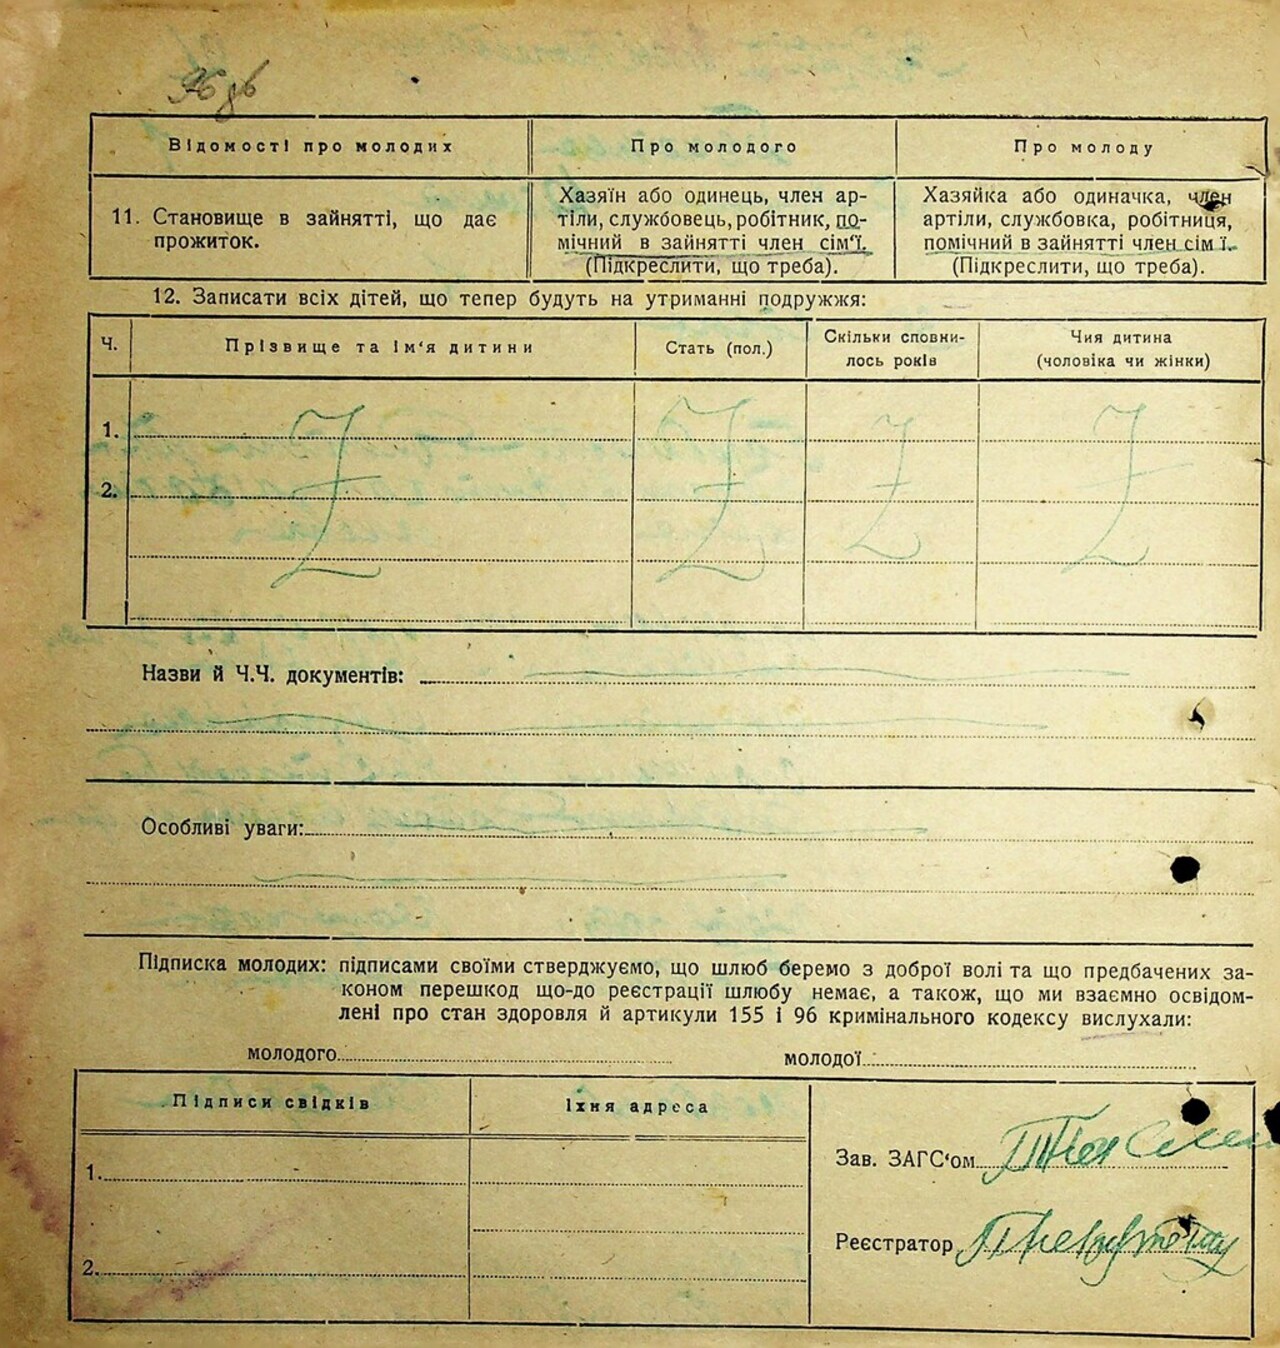 Відомості про молодих
Про молодого
Про молоду
11. Становище в зайнятті, що дає
прожиток.
Хазяїн або одинець, член ар-
тіли, службовець, робітник, по-
мічний в зайнятті член сім'ї.
(Підкреслити, що треба).
Хазяйка або одиначка, член
артіли, службовка, робітниця,
помічний в зайнятті член сім ї.
(Підкреслити, що треба).
12. Записати всіх дітей, що тепер будуть на утриманні подружжя:
Ч.
Прізвище та ім'я дитини
Стать (пол.)
Скільки сповни-
лось років
Чия дитина
(чоловіка чи жінки)
1.
2.
Назви й Ч.Ч. документів:
Особливі уваги:
Підписка молодих: підписами своїми стверджуємо, що шлюб беремо з доброї волі та що предбачених за-
коном перешкод що-до реєстрації шлюбу немає, а також, що ми взаємно освідом-
лені про стан здоровля й артикули 155 і 96 кримінального кодексу вислухали:
молодого
молодої
Підписи свідків
Їхня адреса
1.
2.
Зав. ЗАГС'ом
Реєстратор